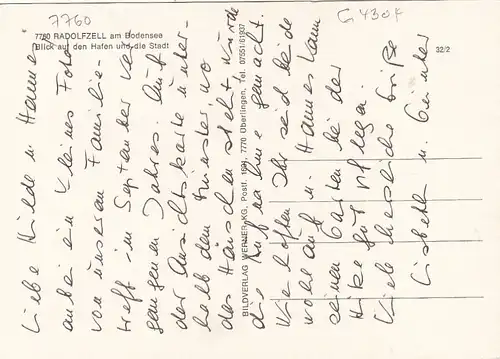 7760
G 430f
7760 RADOLFZELL am Bodensee
Blick auf den Hafen und die Stadt
32/2
BILDVERLAG WERNER KG, Postf. 1691, 7770 Überlingen, Tel. 07551/61937
Liebe Hilde u. Hannes
anbei ein kleines Foto
von unserem Familie-
treff im September ver
gangenen Jahres. Auf
der Ansichtskarte unter-
halb dem Münster, wo
das Häuschen steht wurde
die Aufnahme gemacht.
Wir hoffen Ihr seid beide
wohlauf u. Hannes kann
seinen Garten bei der
Hitze gut pflegen.
Viele herzliche Grüße
Lisbeth u. Günter